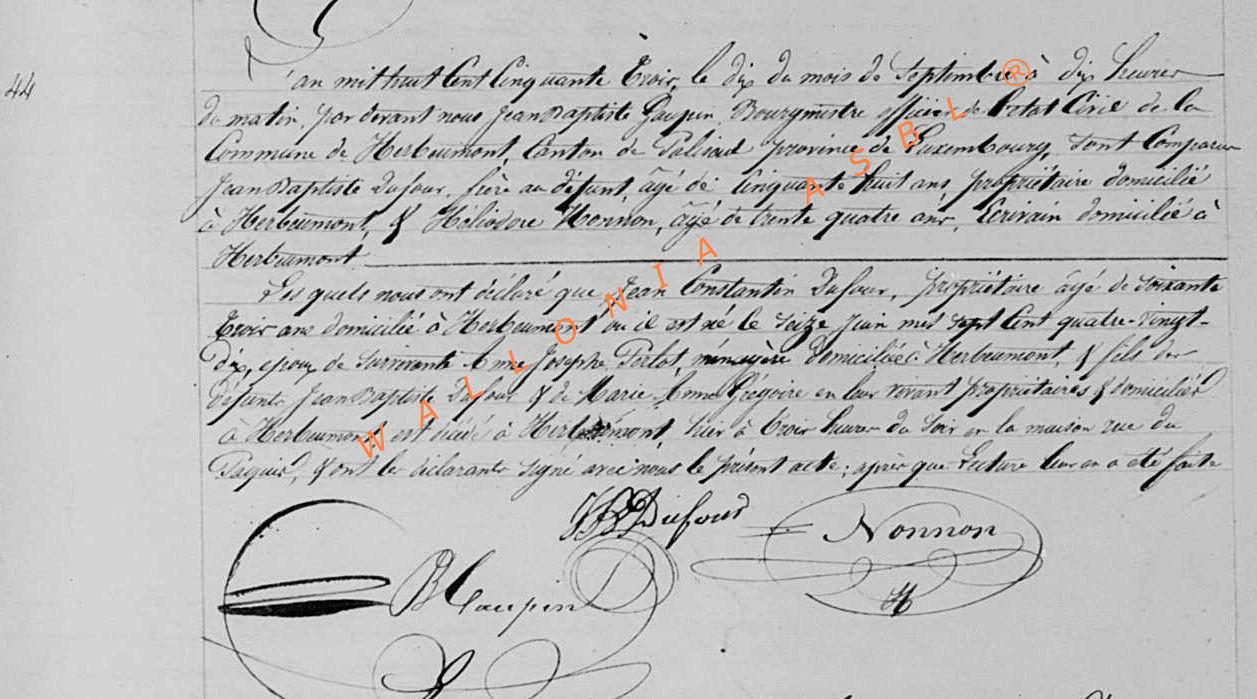 44
L'an mil huit Cent Cinquante Trois, le dix du mois de Septembre à dix heures
du matin, par devant nous Jean Baptiste Gaupin, Bourgmestre officier de l'état Civil de la
Commune de Herbeumont, Canton de Paliseul province de Luxembourg, sont Comparu
Jean Baptiste Dufour, frère au défunt âgé de Cinquante huit ans, propriétaire domicilié
à Herbeumont, & Héliodore Nonnon, âgé de trente quatre ans, Ecrivain domicilié à
Herbeumont
Les quels nous ont déclaré que Jean Constantin Dufour, propriétaire âgé de Soixante
Trois ans domicilié à Herbeumont ou il est né le Seize Juin mil Sept Cent quatre-vingt-
dix, epoux de Survivante Anne Josephe Perlot, ménagère domiciliée à Herbeumont, & fils des
défunts Jean Baptiste Dufour & de Marie Anne Grégoire en leur vivant propriétaires & domiciliés
à Herbeumont est décédé à Herbeumont, hier à trois heures du Soir en la maison rue du
Paquis, & ont les déclarants signé avec nous le présent acte; après que Lecture leur en a été faite
JB Dufour
Nonnon
H
JB Gaupin
WALLONIA ASBL ®